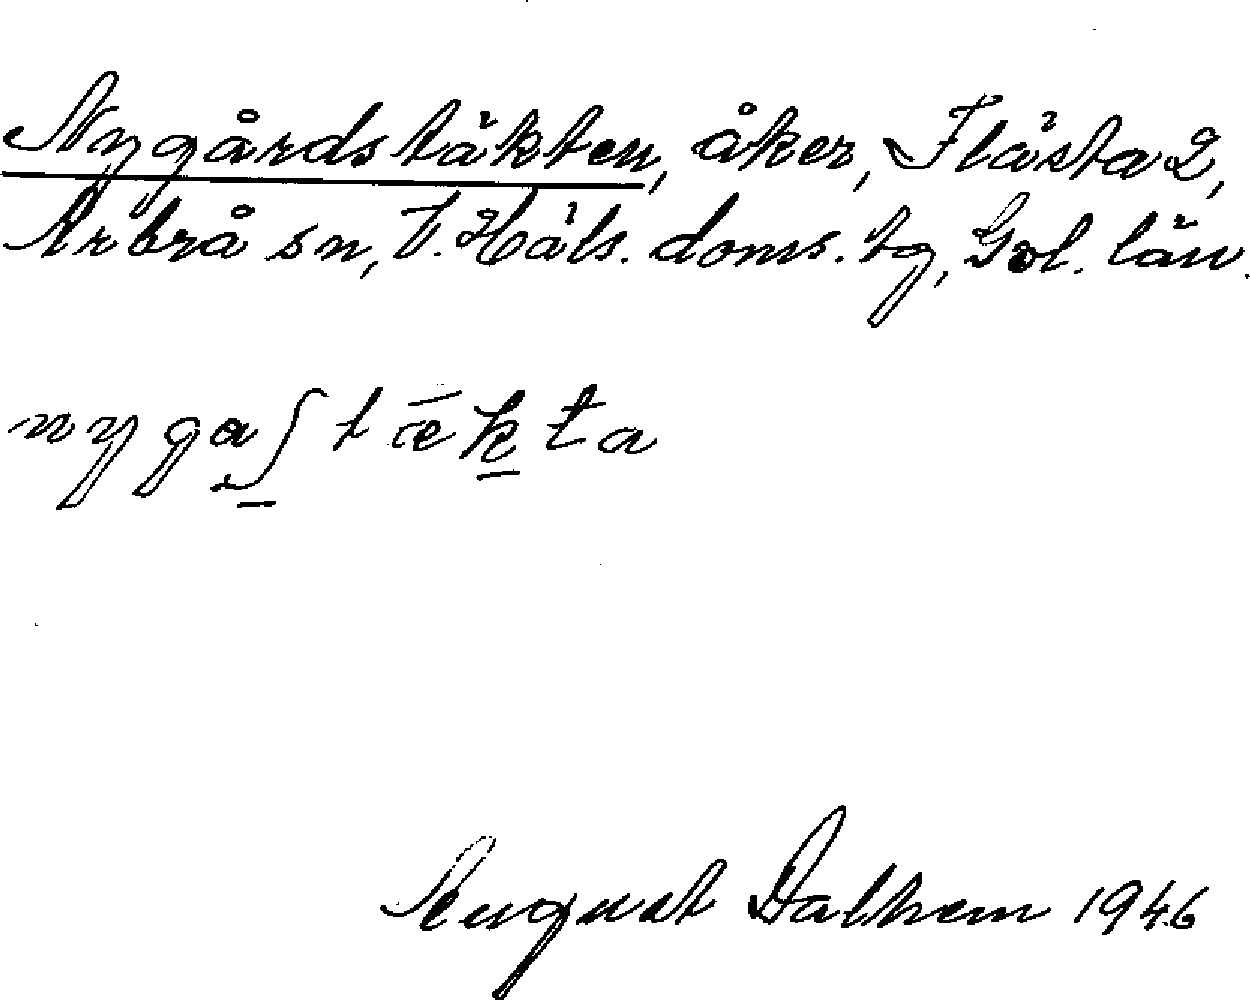 Nygårdstäkten, åker, Flästa 2,
Arbrå sn, V. Häls. doms. tg, Gvl. län.
nygaʃtǣkta
August Dalhem 1946